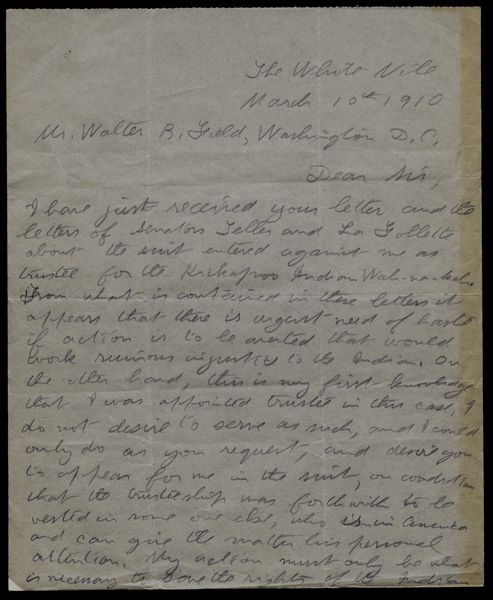 The White Nile
March 10th 1910
Mr. Walter B. Field, Washington D.C.
Dear Sir,
I have just received your letter and the
letters of Senators Teller and La Follette
about the suit entered against me as
trustee for the Kickapoo Indian Wah-na-
From what is contained in these letters it
appears that there is urgent need of haste
if action is to be averted that would
work ruinous injustice to the Indian. On
the other hand, this is my first knowledge
that I was appointed trustee in this case, I
do not desire to serve as such, and I could
only do as you request, and desire you
to appear for me in the suit, on condition
that the trusteeship was forthwith to be
vested in some one else, who is in America
and can give the matter his personal
attention. My action must only be what
is necessary to save the rights of the Indian